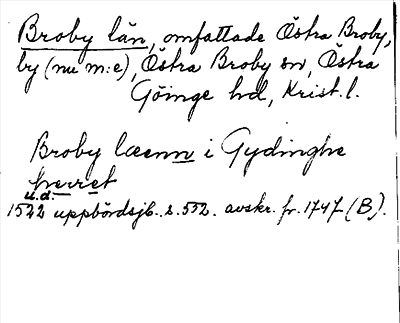 Broby län, omfattade Östra Broby,
by (nu m:e), Östra Broby sn, Östra
Göinge hd, Krist. l.
Broby læenn i Gydinghe
herret
u.d.
1522 uppbördsjb. s. 552. avskr. fr. 1747 (B).